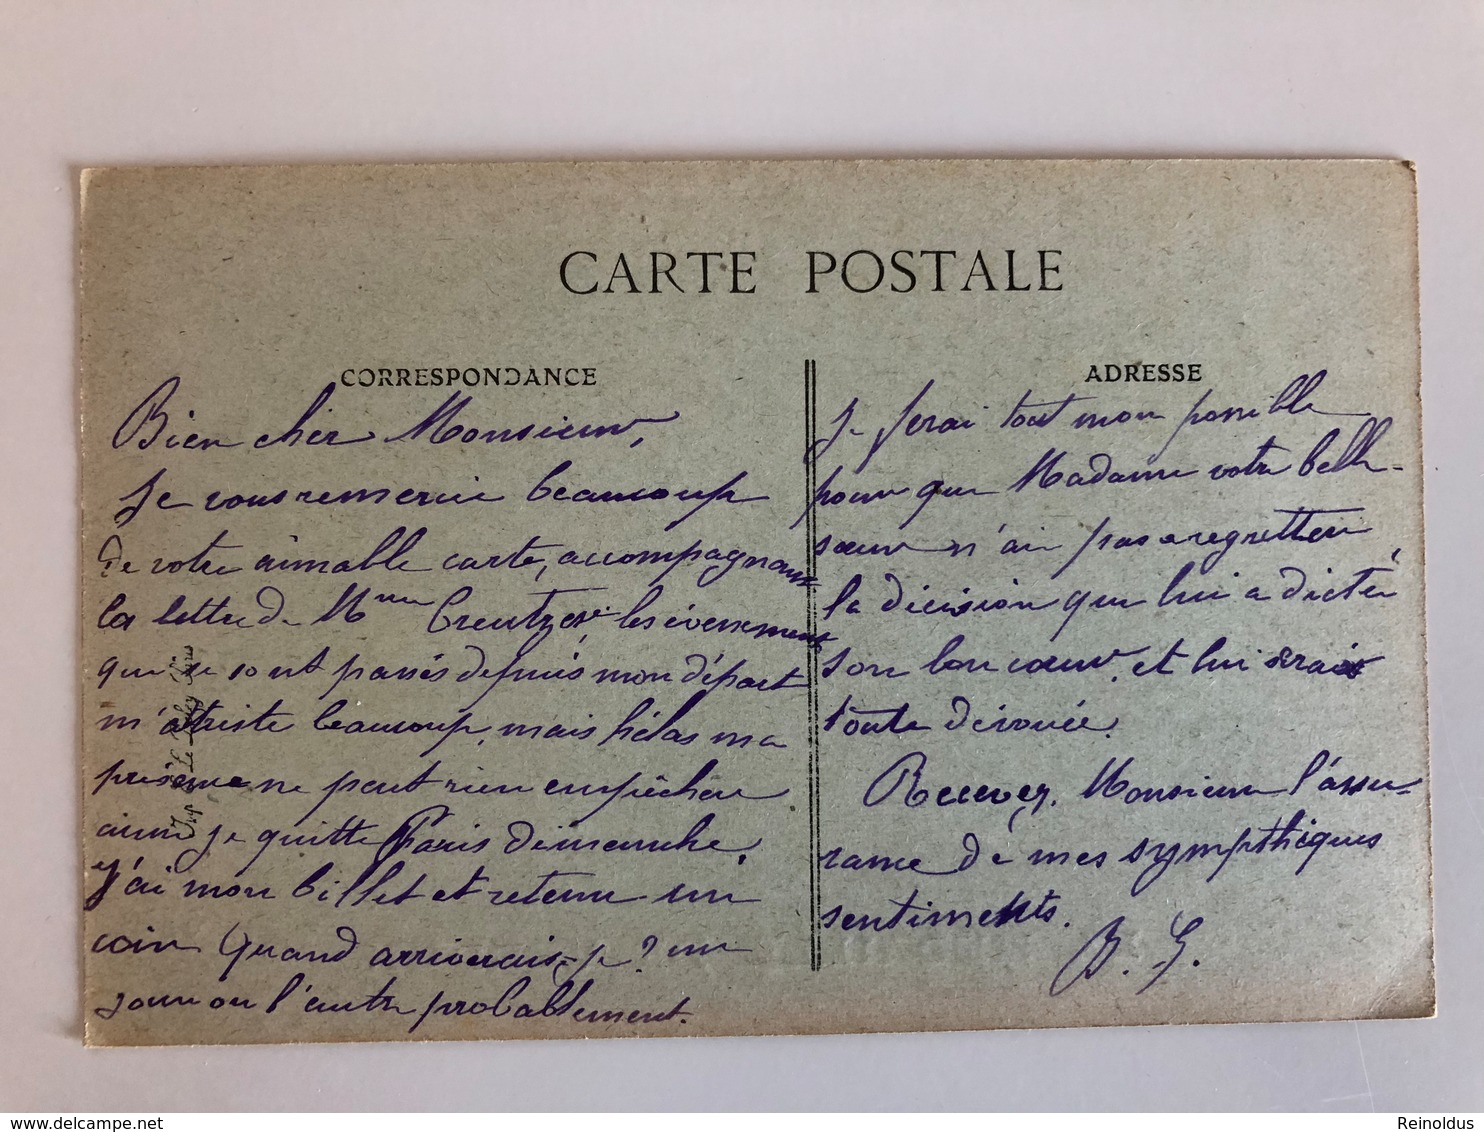 CARTE POSTALE
CORRESPONDANCE
Bien cher Monsieur,
Je vous remercie beaucoup
de votre aimable carte, accompagnant
la lettre de Mme Creutzer. les évènements
qui se sont passés depuis mon départ
m'attriste beaucoup, mais hélas ma
présence ne peut rien empêcher
aussi je quitte Paris dimanche,
j'ai mon billet et retenu un
coin Quand arriverais-je? un
jour ou l'autre probablement.
Imp. Le
ADRESSE
Je ferai tout mon possible
pour que Madame votre belle-
sœur n'ai pas a regretter
la décision que lui a dictée
son bon cœur, et lui serais
toute dévouée.
Recevez, Monsieur l'assu-
rance de mes sympthiques
sentiments.
B. G.
Reinoldus